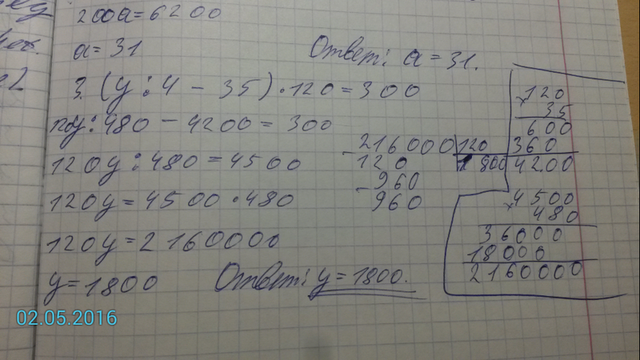 200a=6200
a=31
Ответ: a=31.
3. (y:4-35)·120=300
120y:480-4200=300
120y:480=4500
120y=4500·480
120y=2160000
y=1800
Ответ: y=1800.
216000|120
-120 1800
960
-960
120
×35
600
360
4200
4500
×480
36000
18000
2160000
02.05.2016